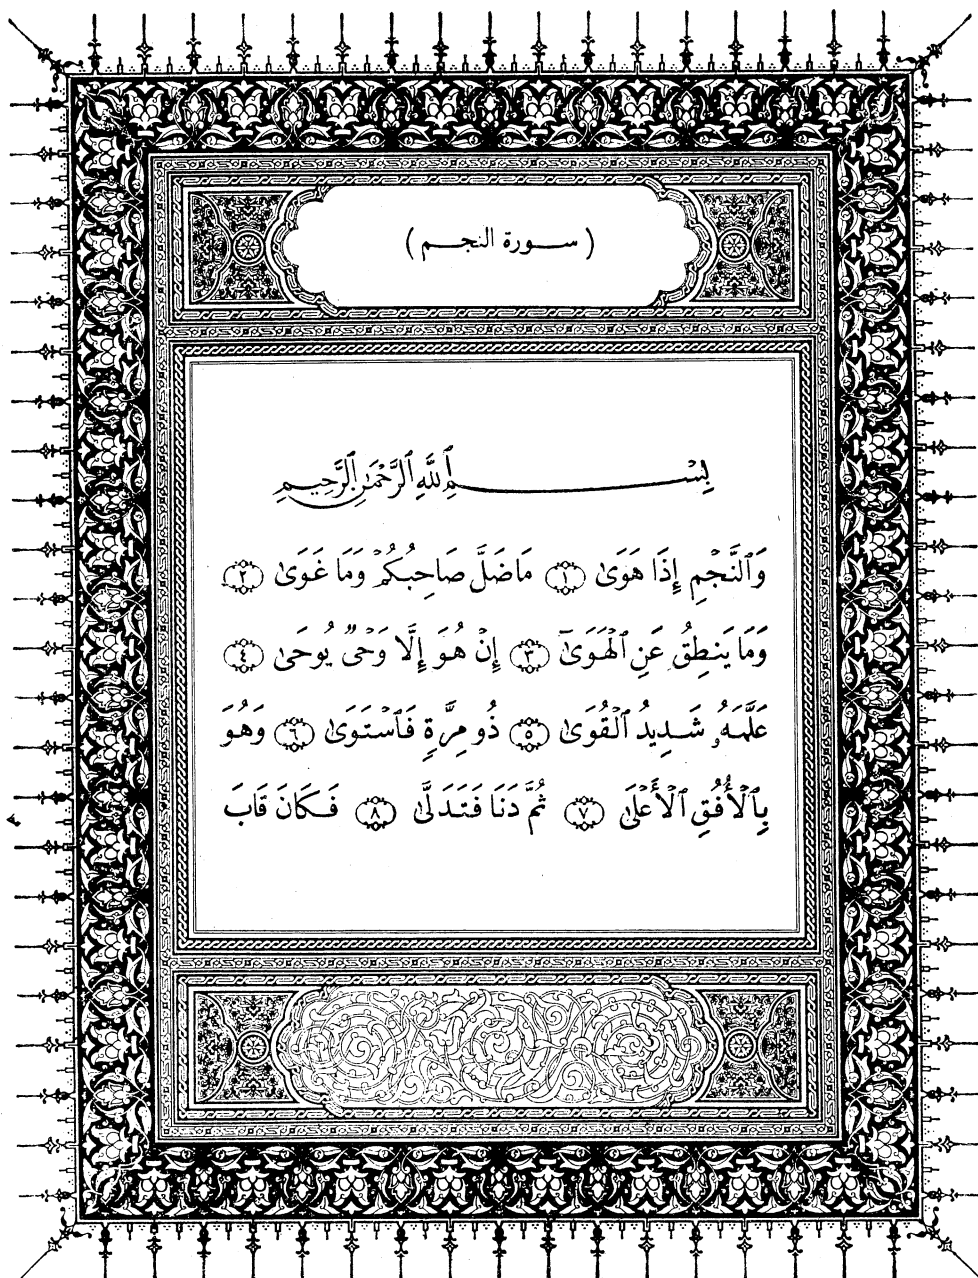 ( سورة النجم )
بِسْمِ ٱللَّهِ ٱلرَّحْمَٰنِ ٱلرَّحِيمِ
وَٱلنَّجْمِ إِذَا هَوَىٰ ١ مَا ضَلَّ صَاحِبُكُمْ وَمَا غَوَىٰ ٢
وَمَا يَنطِقُ عَنِ ٱلْهَوَىٰٓ ٣ إِنْ هُوَ إِلَّا وَحْىٌ يُوحَىٰ ٤
عَلَّمَهُۥ شَدِيدُ ٱلْقُوَىٰ ٥ ذُو مِرَّةٍ فَٱسْتَوَىٰ ٦ وَهُوَ
بِٱلْأُفُقِ ٱلْأَعْلَىٰ ٧ ثُمَّ دَنَا فَتَدَلَّىٰ ٨ فَكَانَ قَابَ